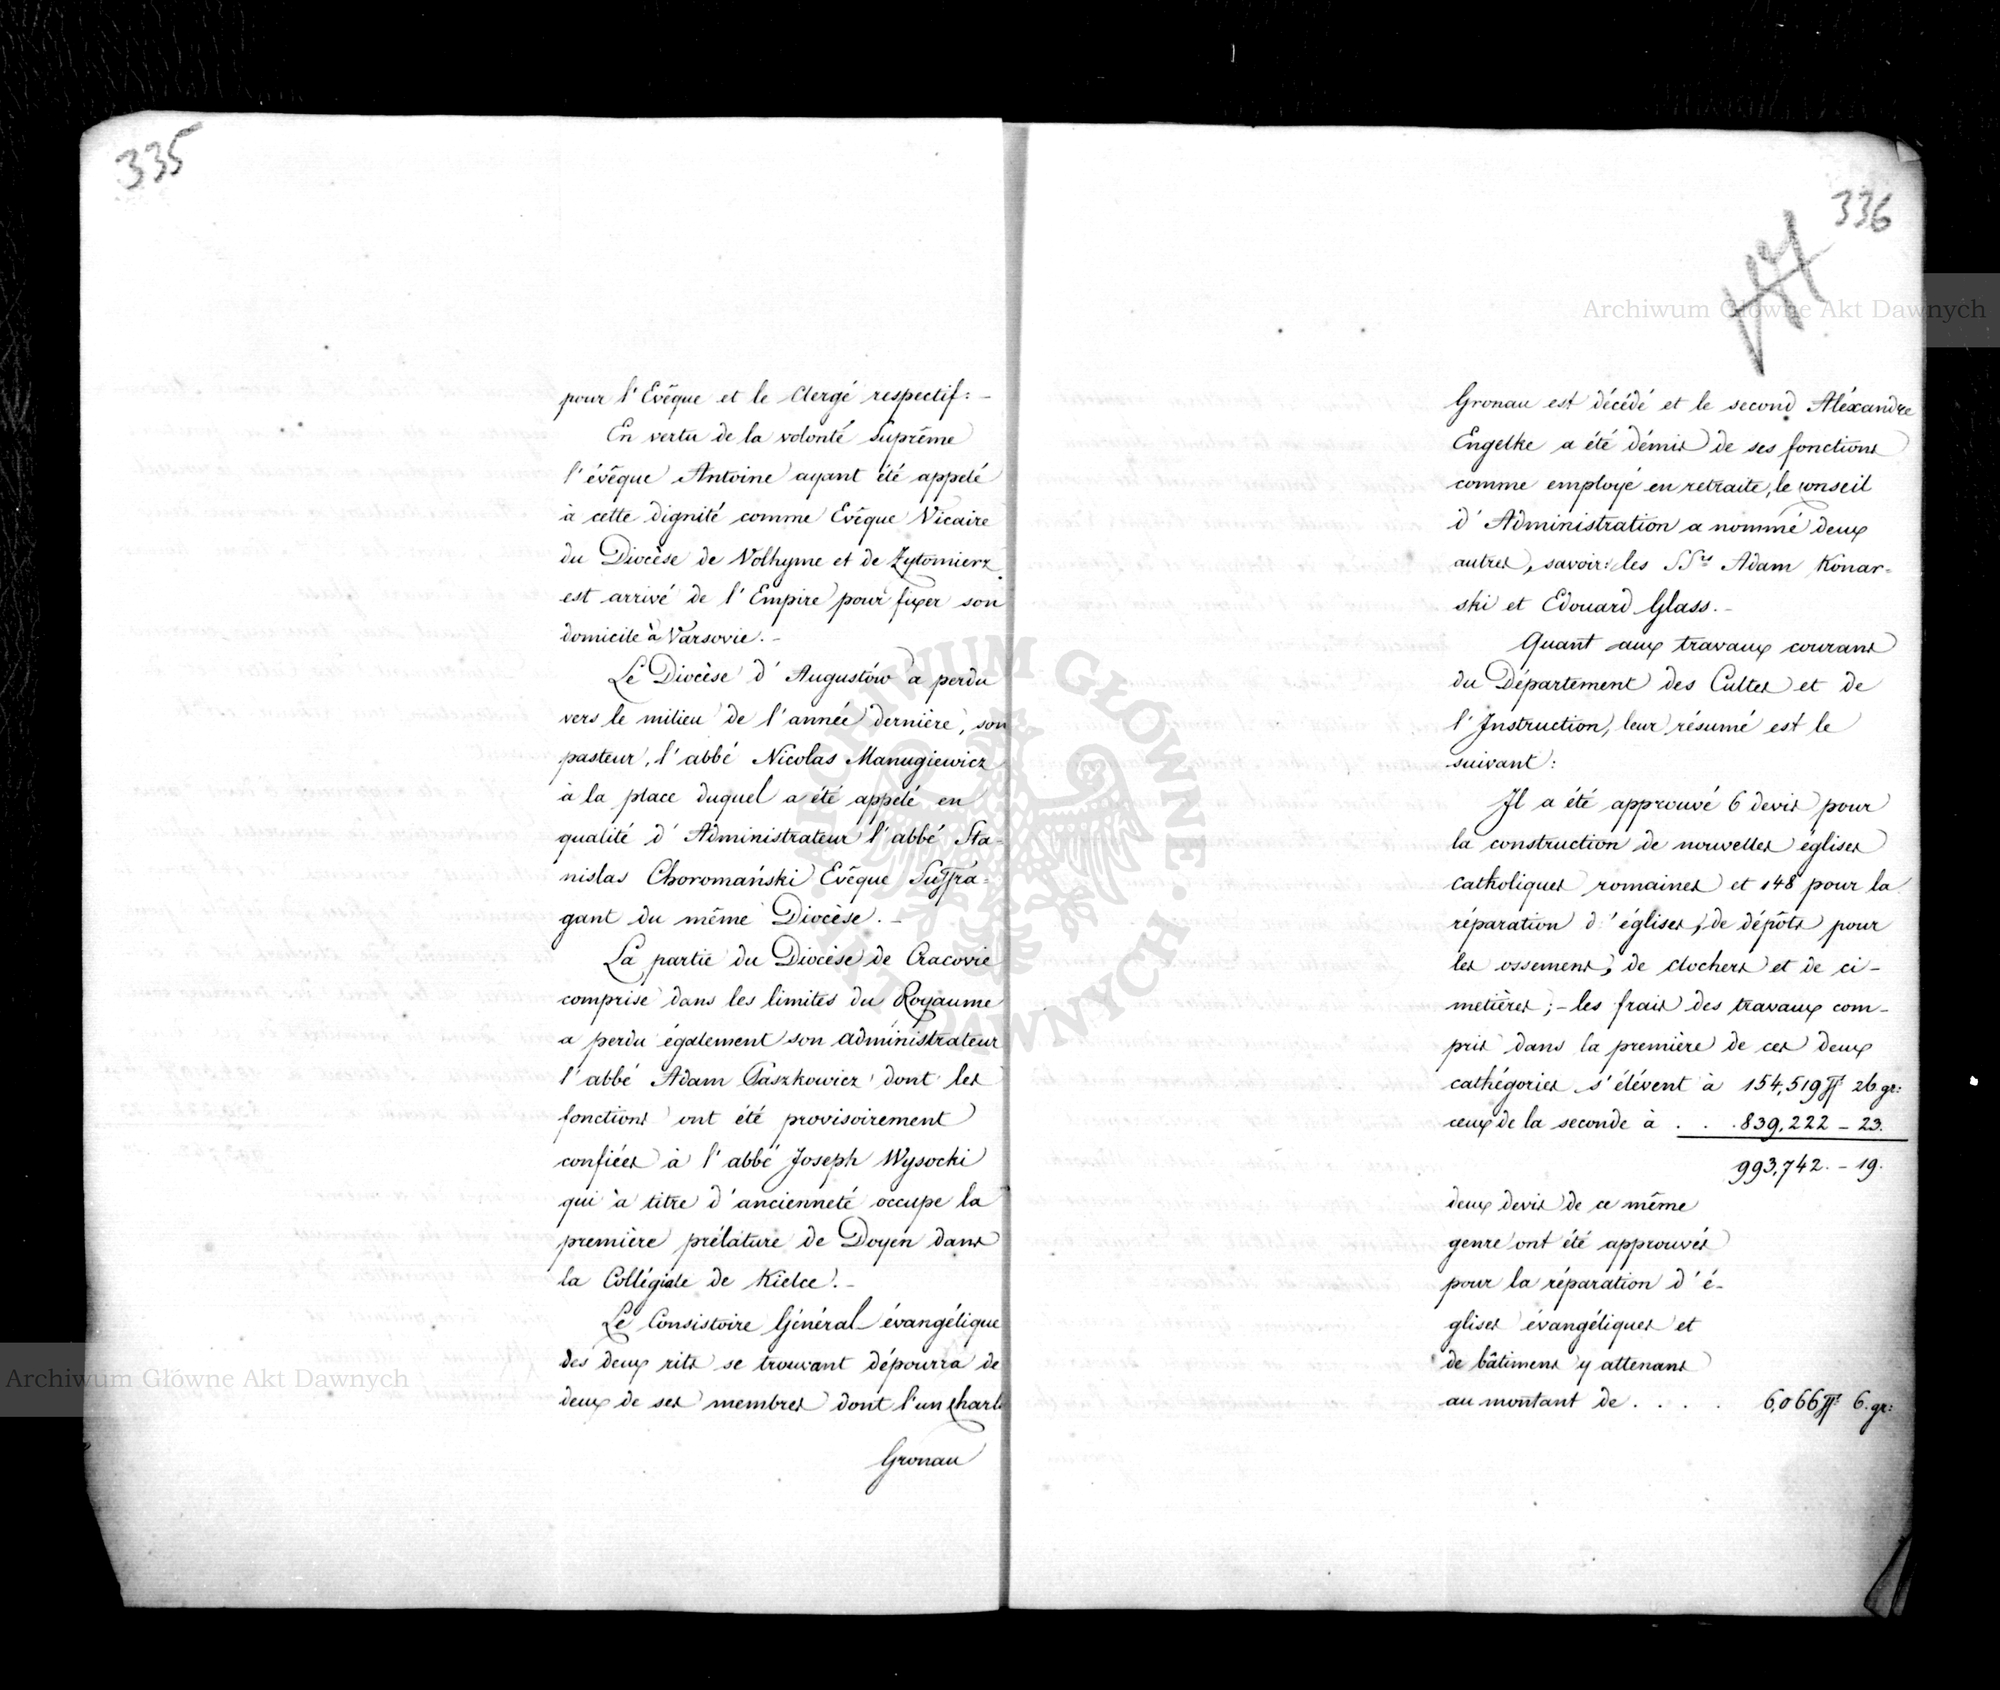 335
pour l'Evêque et le Clergé respectif: –
En vertu de la volonté Suprême
l'évêque Antoine ayant été appelé
à cette dignité comme Evêque Vicaire
du Diocèse de Volhynie et de Zytomierz
est arrivé de l'Empire pour fixer son
domicile à Varsovie. –
Le Diocèse d'Augustów a perdu
vers le milieu de l'année dernière, son
pasteur, l'abbé Nicolas Manugiewicz
à la place duquel a été appelé en
qualité d'Administrateur l'abbé Sta-
nislas Choromański Evêque Suffra-
gant du même Diocèse. –
La partie du Diocèse de Cracovie
comprise dans les limites du Royaume
a perdu également son administrateur
l'abbé Adam Paszkowicz dont les
fonctions ont été provisoirement
confiées à l'abbé Joseph Wysocki
qui à titre d'ancienneté occupe la
première prélature de Doyen dans
la Collégiale de Kielce. –
Le Consistoire Général évangélique
des deux rits se trouvant dépourvu de
deux de ses membres dont l'un Charle
Gronau
336
Gronau est décédé et le second Aléxandre
Engelke a été démis de ses fonctions
comme employé en retraite, le conseil
d'Administration a nommé deux
autres, savoir: les SSrs Adam Konar-
ski et Edouard Glass. –
Quant aux travaux courans
du Département des Cultes et de
l'Instruction, leur résumé est le
suivant:
Il a été approuvé 6 devis pour
la construction de nouvelles églises
catholiques romaines et 148 pour la
réparation d'églises, de dépôts pour
les ossemens, de clochers et de ci-
metières; – les frais des travaux com-
pris dans la première de ces deux
cathégories s'élévent à 154,519 fl 26 gr:
ceux de la seconde à . . . 839,222 – 23.
993,742. – 19.
deux devis de ce même
genre ont été approuvés
pour la réparation d'é-
glises évangéliques et
de bâtimens y attenans
au montant de . . . . 6,066 fl 6. gr:
Archiwum Główne Akt Dawnych
Archiwum Główne Akt Dawnych
ARCHIWUM GŁÓWNE AKT DAWNYCH